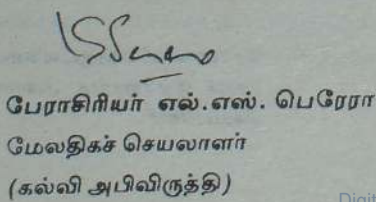 பேராசிரியர் எல்.எஸ். பெரேரா
மேலதிகச் செயலாளர்
(கல்வி அபிவிருத்தி)
Digit